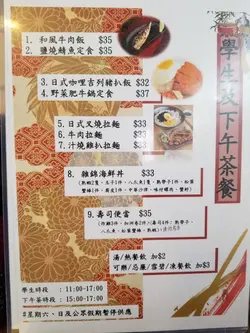 學生及下午茶餐
1. 和風牛肉飯 $35
2. 鹽燒鯖魚定食 $35
3. 日式咖哩吉列豬扒飯 $33
4. 野菜肥牛鍋定食 $37
5. 日式叉燒拉麵 $33
6. 牛肉拉麵 $33
7. 汁燒雞扒拉麵 $33
8. 雜錦海鮮丼 $33
9. 壽司便當 $35
湯/熱餐飲 加$2
可樂/忌廉/雪碧/凍餐飲 加$3
學生時段 : 11:00-17:00
下午茶時段 : 15:00-17:00
星期六、日及公眾假期暫停供應